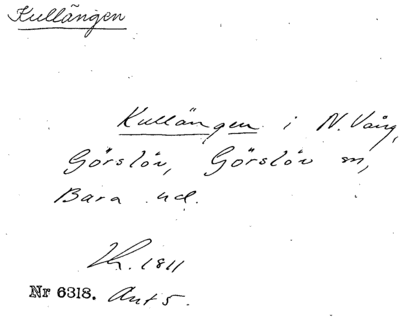 Kullängen
Kullängen i N. Vång,
Görslöv, Görslöv sn,
Bara hd.
1811
Nr 6318. Ant 5.